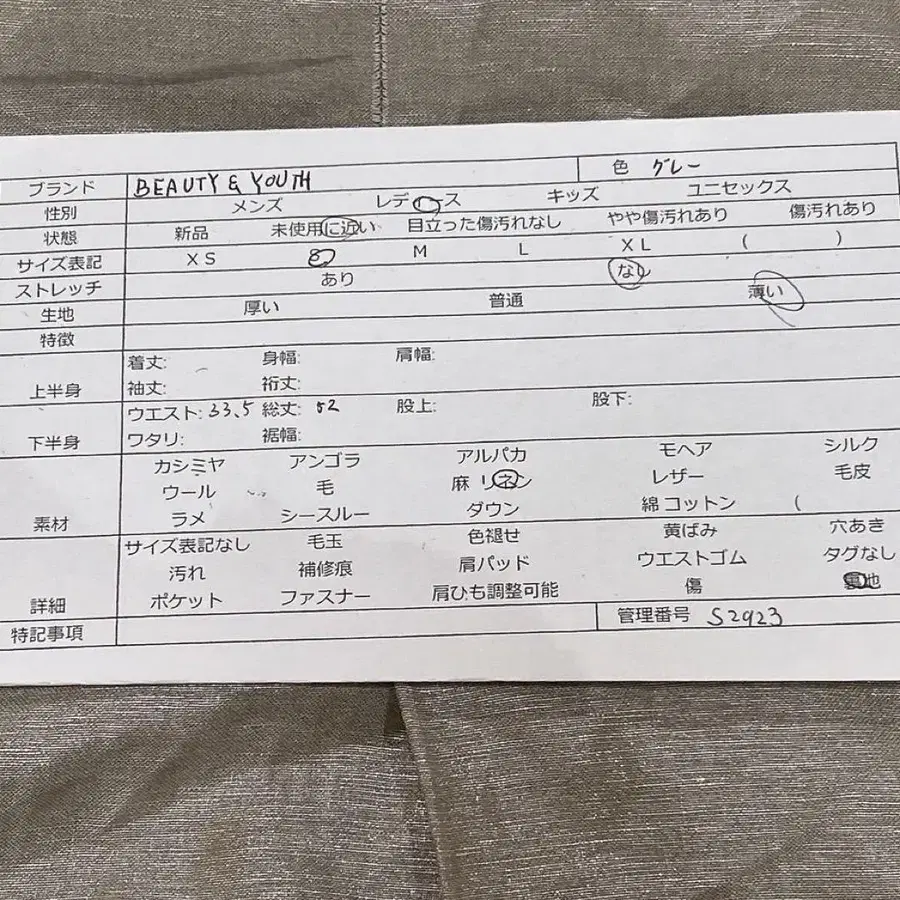 ブランド BEAUTY & YOUTH 色 グレー
性別 メンズ レディース キッズ ユニセックス
状態 新品 未使用に近い 目立った傷汚れなし やや傷汚れあり 傷汚れあり
サイズ表記 XS S M L XL ( )
ストレッチ あり なし
生地 厚い 普通 薄い
特徴
上半身 着丈: 身幅: 肩幅:
袖丈: 裄丈:
下半身 ウエスト: 33.5 総丈: 52 股上: 股下:
ワタリ: 裾幅:
素材 カシミヤ アンゴラ アルパカ モヘア シルク
ウール 毛 麻 リネン レザー 毛皮
ラメ シースルー ダウン 綿 コットン (
詳細 サイズ表記なし 毛玉 色褪せ 黄ばみ 穴あき
汚れ 補修痕 肩パッド ウエストゴム タグなし
ポケット ファスナー 肩ひも調整可能 傷 裏地
特記事項 管理番号 S2923